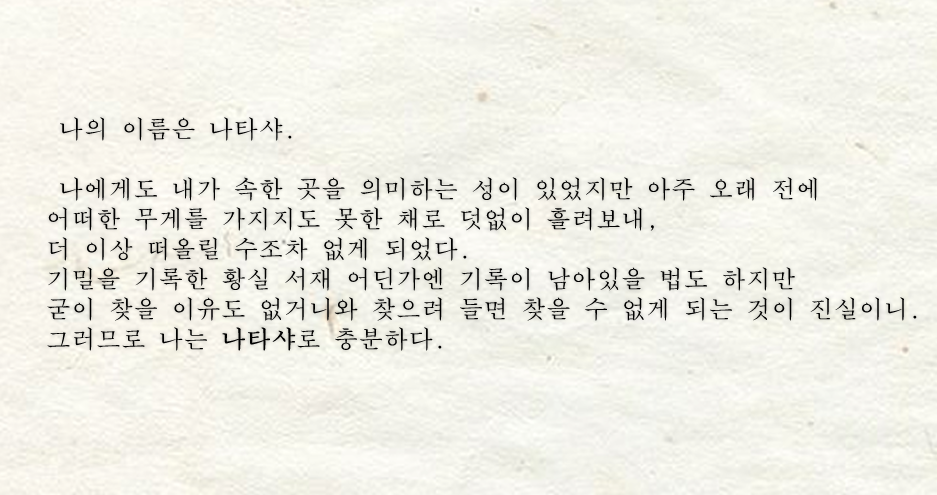 나의 이름은 나타샤.
나에게도 내가 속한 곳을 의미하는 성이 있었지만 아주 오래 전에
어떠한 무게를 가지지도 못한 채로 덧없이 흘려보내,
더 이상 떠올릴 수조차 없게 되었다.
기밀을 기록한 황실 서재 어딘가엔 기록이 남아있을 법도 하지만
굳이 찾을 이유도 없거니와 찾으려 들면 찾을 수 없게 되는 것이 진실이니.
그러므로 나는 나타샤로 충분하다.